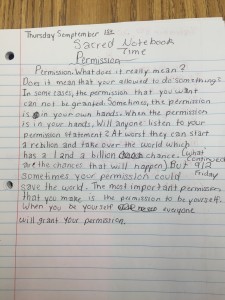 Thursday Semptember 1st
Sacred Notebook
Time
Permission
Permission. What does it really mean?
Does it mean that your allowed to do somethings?
In some cases, the permission that you want
can not be granted. Sometimes, the permission
is in your own hands. When the permission
is in your hands. Will anyone listen to your
permission statement? At worst they can start
a reblion and take over the world which
has a 1 and a billion chance. (what
are the chances that will happen). But
continued
9/2
Friday
sometimes your permission could
save the world. The most important permission
that you make is the permission to be yourself.
When you be yourself everyone
will grant your permission.